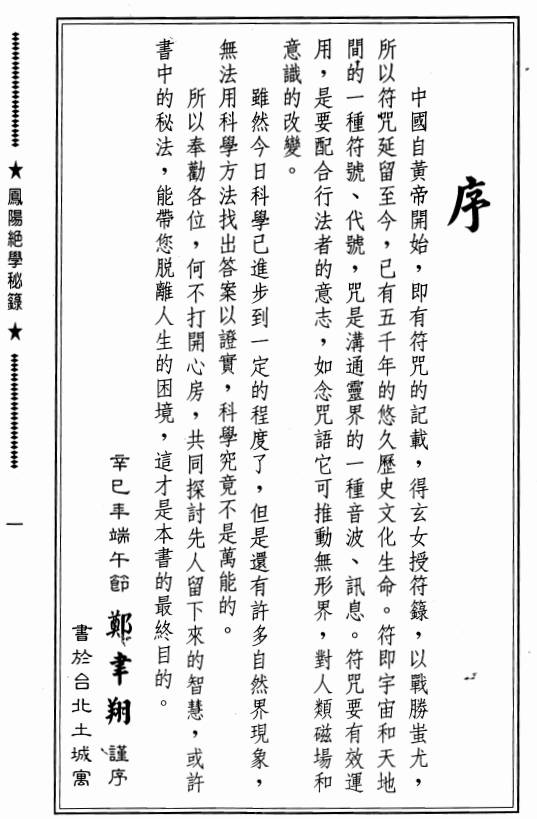 序
中國自黃帝開始，即有符咒的記載，得玄女授符籙，以戰勝蚩尤，
所以符咒延留至今，已有五千年的悠久歷史文化生命。符即宇宙和天地
間的一種符號、代號，咒是溝通靈界的一種音波、訊息。符咒要有效運
用，是要配合行法者的意志，如念咒語它可推動無形界，對人類磁場和
意識的改變。
雖然今日科學已進步到一定的程度了，但是還有許多自然界現象，
無法用科學方法找出答案以證實，科學究竟不是萬能的。
所以奉勸各位，何不打開心房，共同探討先人留下來的智慧，或許
書中的秘法，能帶您脫離人生的困境，這才是本書的最終目的。
辛巳年端午節 鄭聿翔 謹序
書於台北土城寓
★ 鳳陽絕學秘籙 ★
一